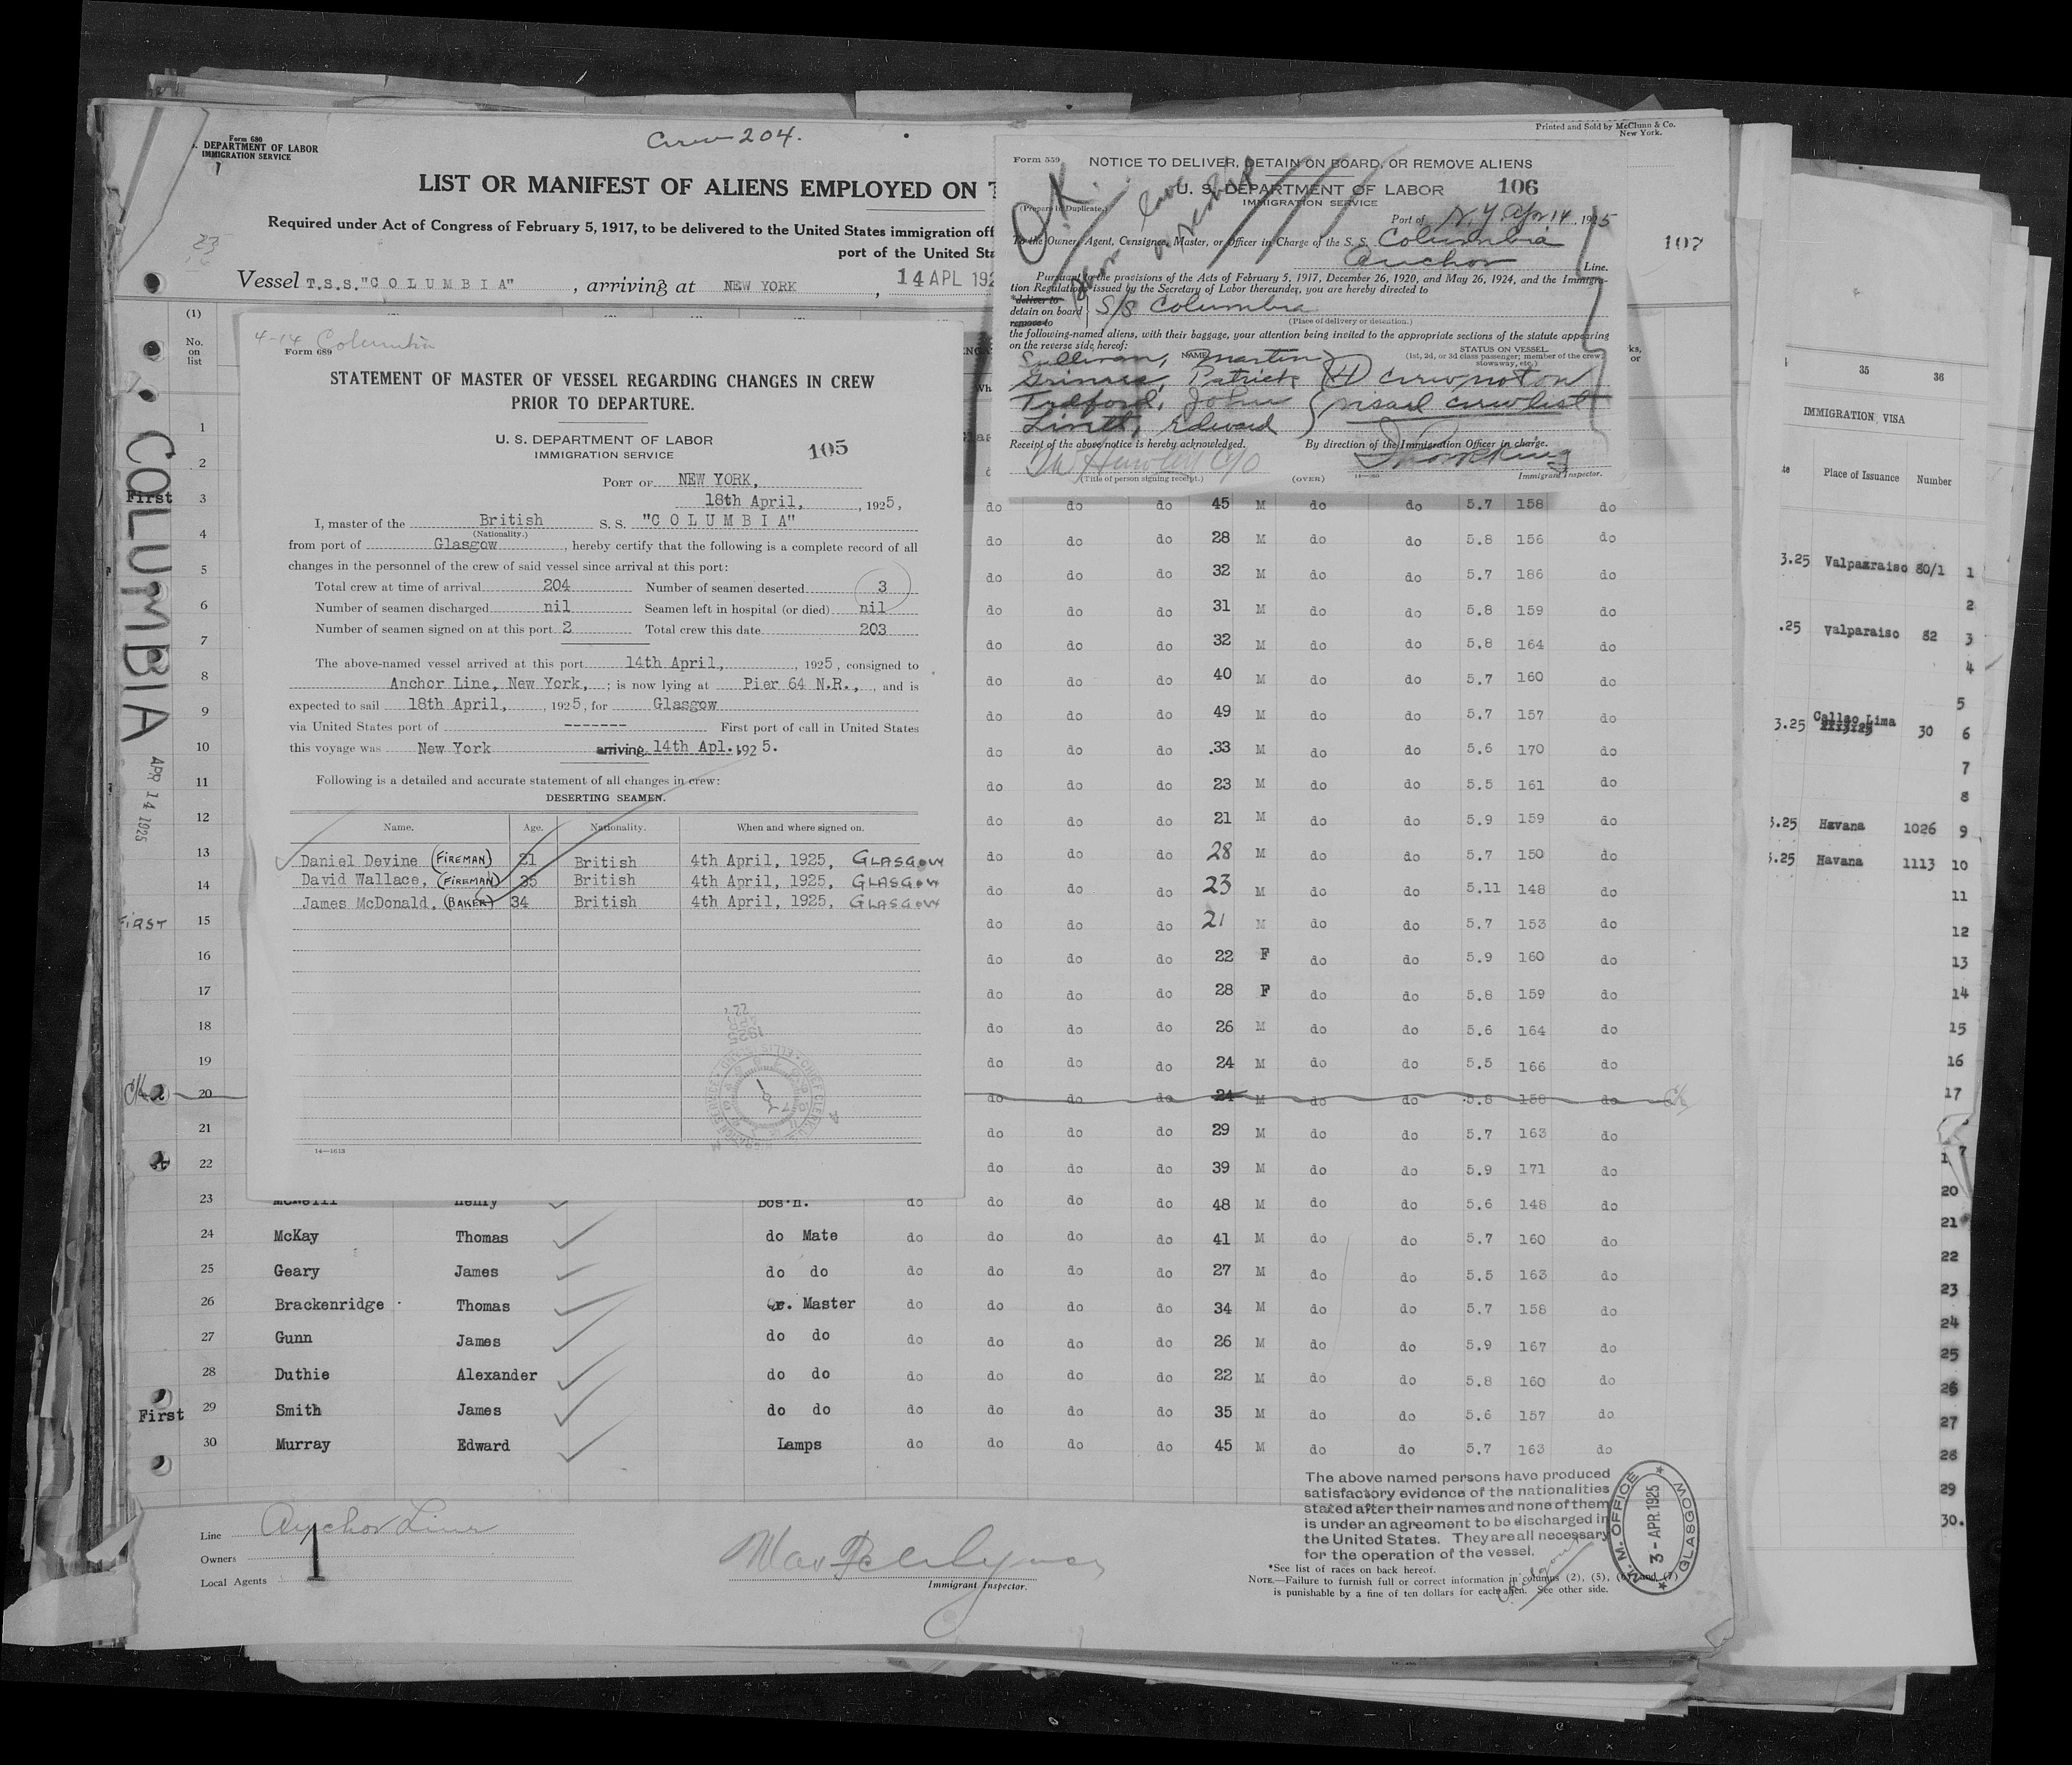 Form 680
. DEPARTMENT OF LABOR
IMMIGRATION SERVICE
Crew 204.
Printed and Sold by McClunn & Co.
New York.
LIST OR MANIFEST OF ALIENS EMPLOYED ON T
Required under Act of Congress of February 5, 1917, to be delivered to the United States immigration off
port of the United Sta
Vessel T.S.S. "C O L U M B I A" , arriving at NEW YORK , 14 APL 192
107
(1)
No. on list
COLUMBIA
APR 14 1925
4-14 Columbia
Form 689
STATEMENT OF MASTER OF VESSEL REGARDING CHANGES IN CREW
PRIOR TO DEPARTURE.
U. S. DEPARTMENT OF LABOR
IMMIGRATION SERVICE
105
PORT OF NEW YORK,
18th April, , 1925,
I, master of the British S. S. "C O L U M B I A"
(Nationality.)
from port of Glasgow , hereby certify that the following is a complete record of all
changes in the personnel of the crew of said vessel since arrival at this port:
Total crew at time of arrival 204 Number of seamen deserted 3
Number of seamen discharged nil Seamen left in hospital (or died) nil
Number of seamen signed on at this port 2 Total crew this date 203
The above-named vessel arrived at this port 14th April, , 1925, consigned to
Anchor Line, New York, ; is now lying at Pier 64 N.R., , and is
expected to sail 18th April, , 1925, for Glasgow
via United States port of ------- First port of call in United States
this voyage was New York arriving 14th Apl. 1925.
Following is a detailed and accurate statement of all changes in crew:
DESERTING SEAMEN.
Name. Age. Nationality. When and where signed on.
Daniel Devine (FIREMAN) 21 British 4th April, 1925, GLASGOW
David Wallace, (FIREMAN) 35 British 4th April, 1925, GLASGOW
James McDonald, (BAKER) 34 British 4th April, 1925, GLASGOW
14—1613
Form 559
NOTICE TO DELIVER, DETAIN ON BOARD, OR REMOVE ALIENS
U. S. DEPARTMENT OF LABOR 106
IMMIGRATION SERVICE
(Prepare in Duplicate.)
O.K.
Port of N.Y. Apr 14 1925
To the Owner, Agent, Consignee, Master, or Officer in Charge of the S. S. Columbia
Anchor Line.
Pursuant to the provisions of the Acts of February 5, 1917, December 26, 1920, and May 26, 1924, and the Immigra-
tion Regulations issued by the Secretary of Labor thereunder, you are hereby directed to
*deliver to
detain on board S/S Columbia
remove to
(Place of delivery or detention.)
the following-named aliens, with their baggage, your attention being invited to the appropriate sections of the statute appearing
on the reverse side hereof:
NAME STATUS ON VESSEL
(1st, 2d, or 3d class passenger; member of the crew, stowaway, etc.)
Sullivan, Martin
Patrick (4) crew not on
John visaed crew list
Edward
Receipt of the above notice is hereby acknowledged. By direction of the Immigration Officer in charge.
(Title of person signing receipt.) (OVER) Immigrant Inspector.
1
2
First 3 do do do 45 M do do 5.7 158 do
4 do do do 28 M do do 5.8 156 do
5 do do do 32 M do do 5.7 186 do
6 do do do 31 M do do 5.8 159 do
7 do do do 32 M do do 5.8 164 do
8 do do do 40 M do do 5.7 160 do
9 do do do 49 M do do 5.7 157 do
10 do do do 33 M do do 5.6 170 do
11 do do do 23 M do do 5.5 161 do
12 do do do 21 M do do 5.9 159 do
13 do do do 28 M do do 5.7 150 do
14 do do do 23 M do do 5.11 148 do
FIRST 15 do do do 21 M do do 5.7 153 do
16 do do do 22 F do do 5.9 160 do
17 do do do 28 F do do 5.8 159 do
18 do do do 26 M do do 5.6 164 do
19 do do do 24 M do do 5.5 166 do
20 do do do 24 M do do 5.8 158 do
21 do do do 29 M do do 5.7 163 do
22 do do do 39 M do do 5.9 171 do
23 McNeill Henry Bos'n. do do do do 48 M do do 5.6 148 do
24 McKay Thomas do Mate do do do do 41 M do do 5.7 160 do
25 Geary James do do do do do do 27 M do do 5.5 163 do
26 Brackenridge Thomas Qr. Master do do do do 34 M do do 5.7 158 do
27 Gunn James do do do do do do 26 M do do 5.9 167 do
28 Duthie Alexander do do do do do do 22 M do do 5.8 160 do
First 29 Smith James do do do do do do 35 M do do 5.6 157 do
30 Murray Edward Lamps do do do do 45 M do do 5.7 163 do
The above named persons have produced
satisfactory evidence of the nationalities
stated after their names and none of them
is under an agreement to be discharged in
the United States. They are all necessary
for the operation of the vessel.
M. M. OFFICE
3 - APR 1925
GLASGOW
Line Anchor Line
Owners
Local Agents
1
Immigrant Inspector.
*See list of races on back hereof.
NOTE.—Failure to furnish full or correct information in columns (2), (5), (6) and (7)
is punishable by a fine of ten dollars for each alien. See other side.
35 36
IMMIGRATION VISA
Place of Issuance Number
3.25 Valparaiso 80/1 1
2
.25 Valparaiso 82 3
4
5
3.25 Callao Lima 30 6
7
8
3.25 Havana 1026 9
3.25 Havana 1113 10
11
12
13
14
15
16
17
20
21
22
23
24
25
26
27
28
29
30.